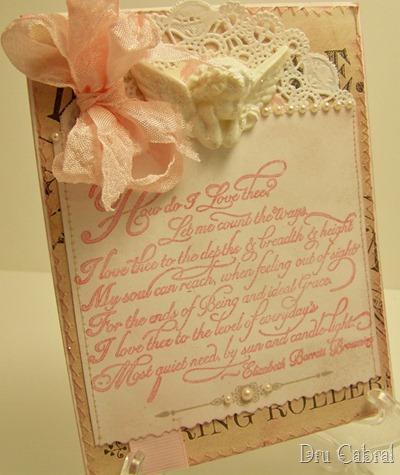 "How do I Love thee?
Let me count the ways.
I love thee to the depths & breadth & height
My soul can reach, when feeling out of sight
For the ends of Being and ideal Grace.
I love thee to the level of everyday's
Most quiet need, by sun and candle-light.
~ Elizabeth Barrett Browning
RING ROLLER
Dru Cabral